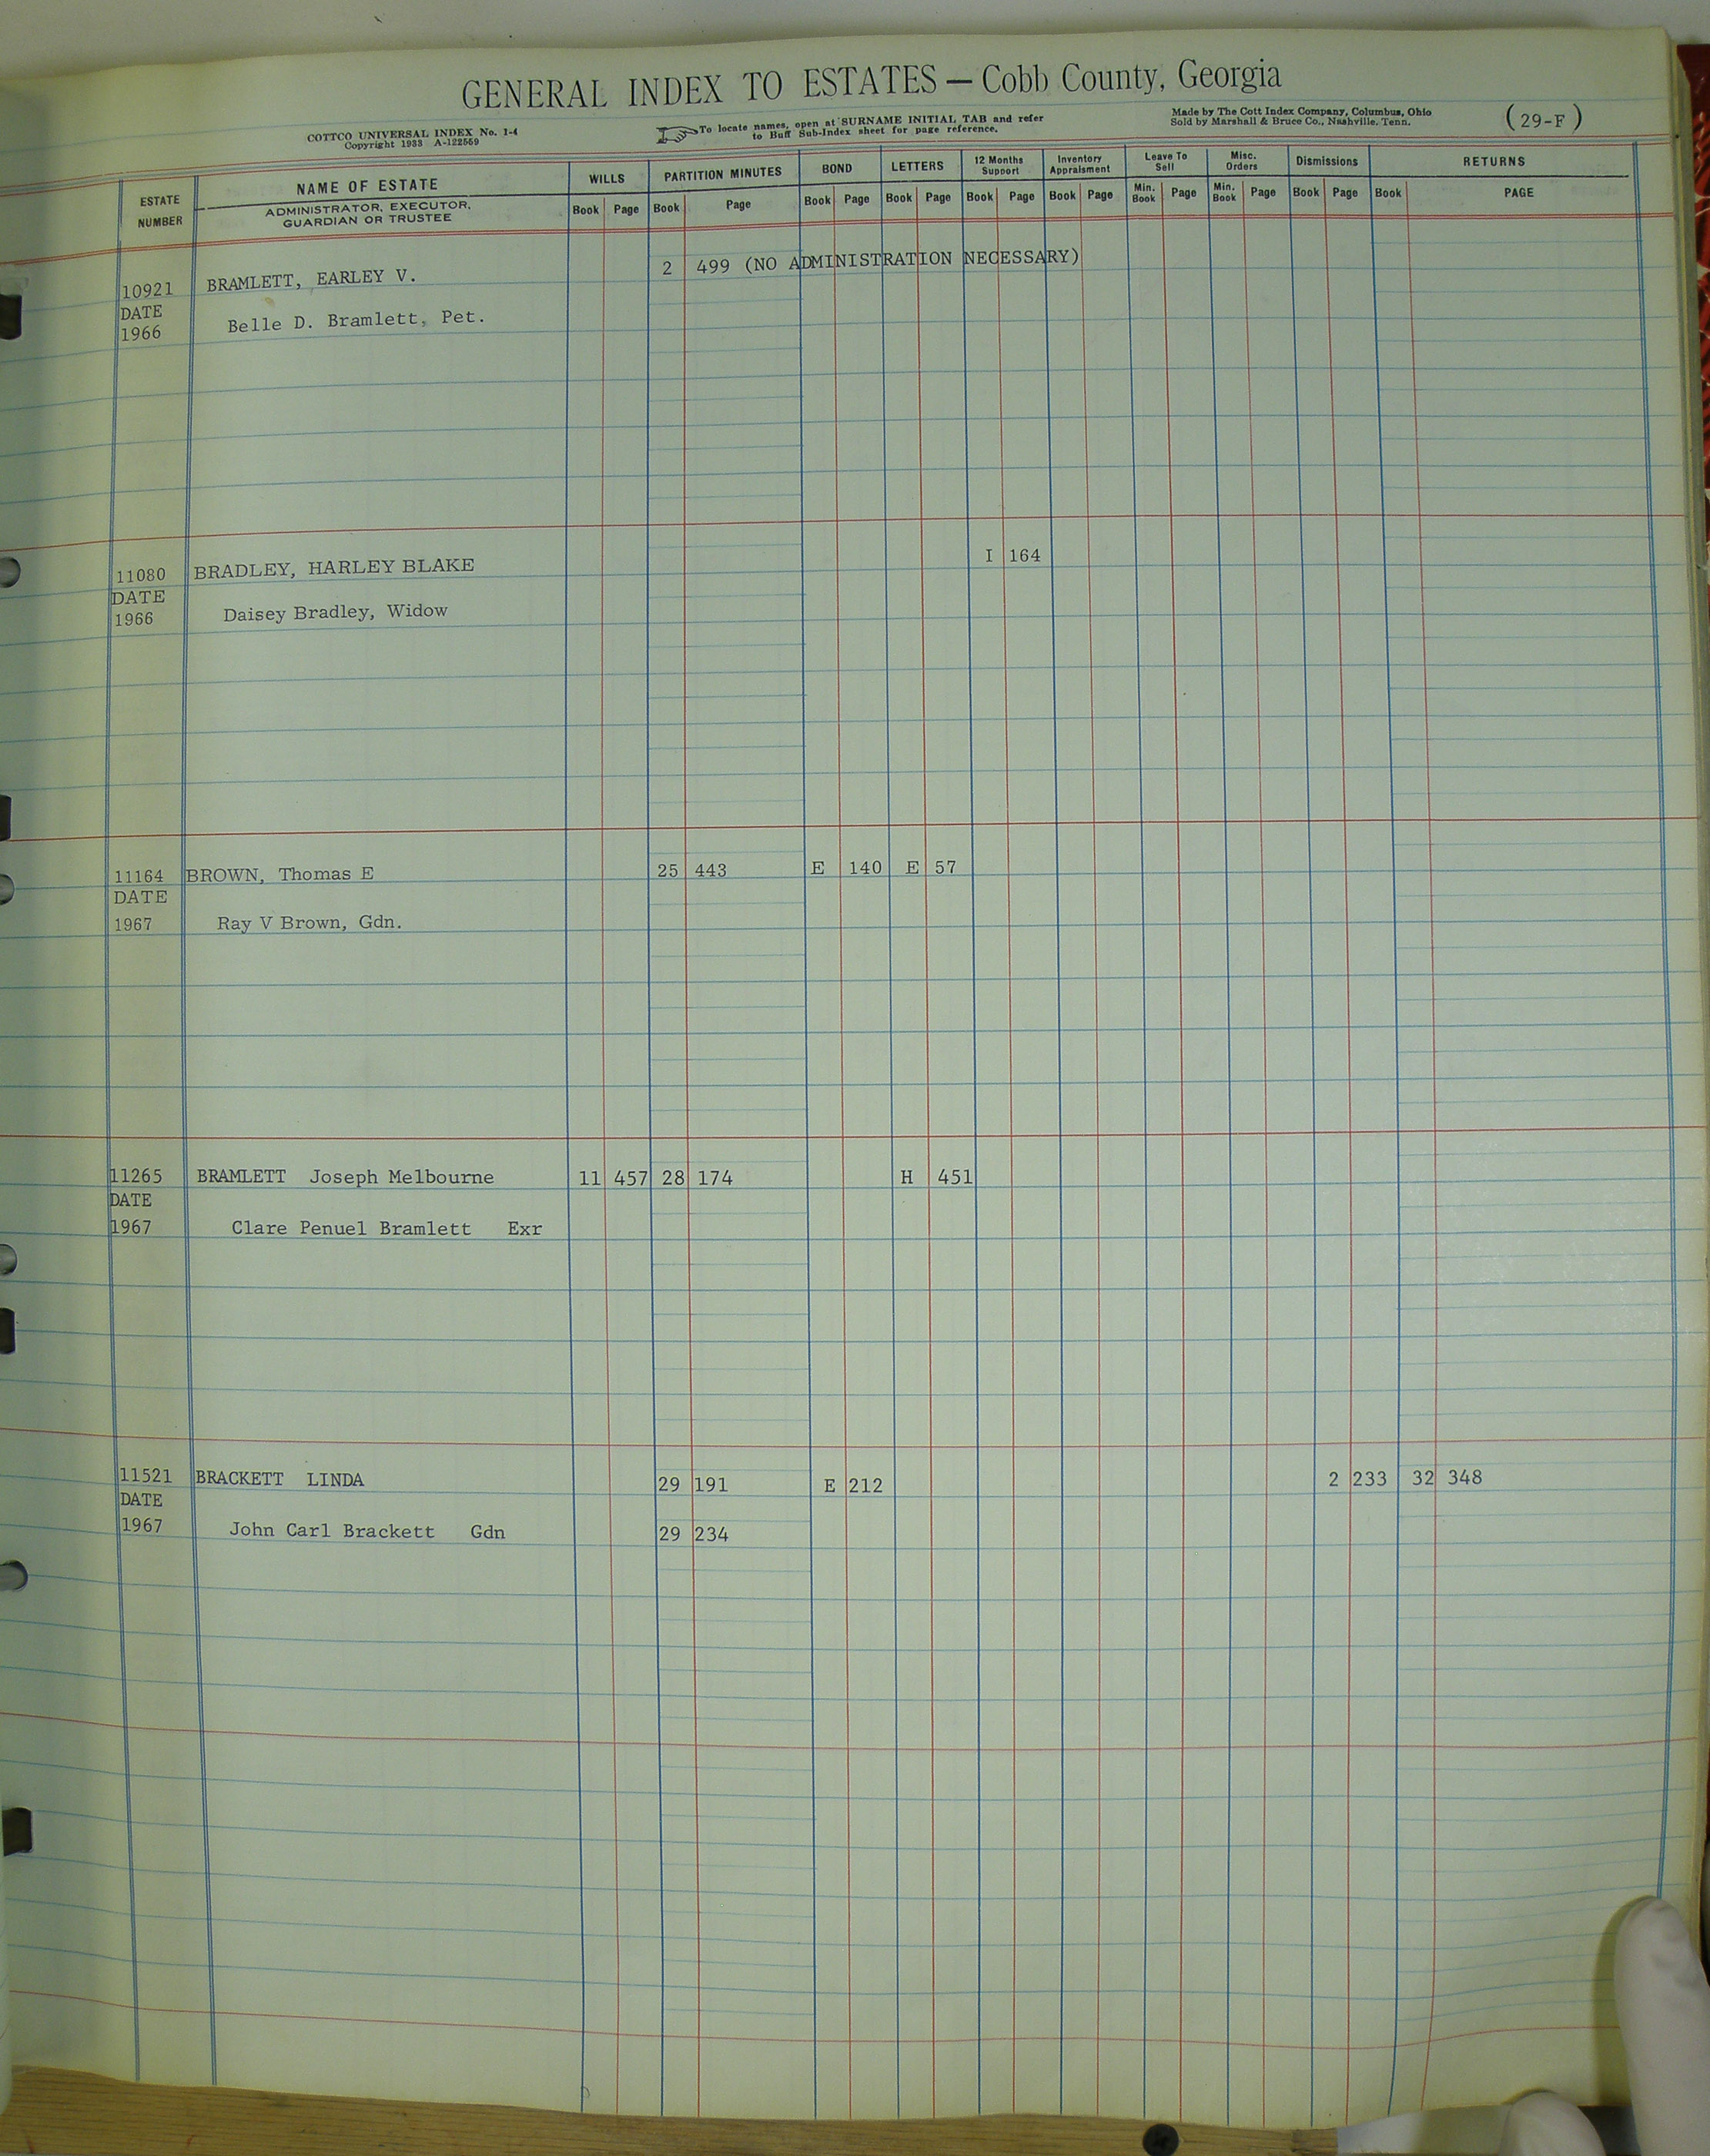 GENERAL INDEX TO ESTATES — Cobb County, Georgia
COTTCO UNIVERSAL INDEX No. 1-4
Copyright 1933 A-122559
To locate names, open at SURNAME INITIAL TAB and refer
to Buff Sub-Index sheet for page reference.
Made by The Cott Index Company, Columbus, Ohio
Sold by Marshall & Bruce Co., Nashville. Tenn.
(29-F)
ESTATE NUMBER NAME OF ESTATE WILLS PARTITION MINUTES BOND LETTERS 12 Months Support Inventory Appraisment Leave To Sell Misc. Orders Dismissions RETURNS
ADMINISTRATOR, EXECUTOR,
GUARDIAN OR TRUSTEE
Book Page Book Page Book Page Book Page Book Page Book Page Min. Book Page Min. Book Page Book Page Book PAGE
10921 BRAMLETT, EARLEY V. 2 499 (NO ADMINISTRATION NECESSARY)
DATE
1966 Belle D. Bramlett, Pet.
11080 BRADLEY, HARLEY BLAKE I 164
DATE
1966 Daisey Bradley, Widow
11164 BROWN, Thomas E 25 443 E 140 E 57
DATE
1967 Ray V Brown, Gdn.
11265 BRAMLETT Joseph Melbourne 11 457 28 174 H 451
DATE
1967 Clare Penuel Bramlett Exr
11521 BRACKETT LINDA 29 191 E 212 2 233 32 348
DATE
1967 John Carl Brackett Gdn 29 234